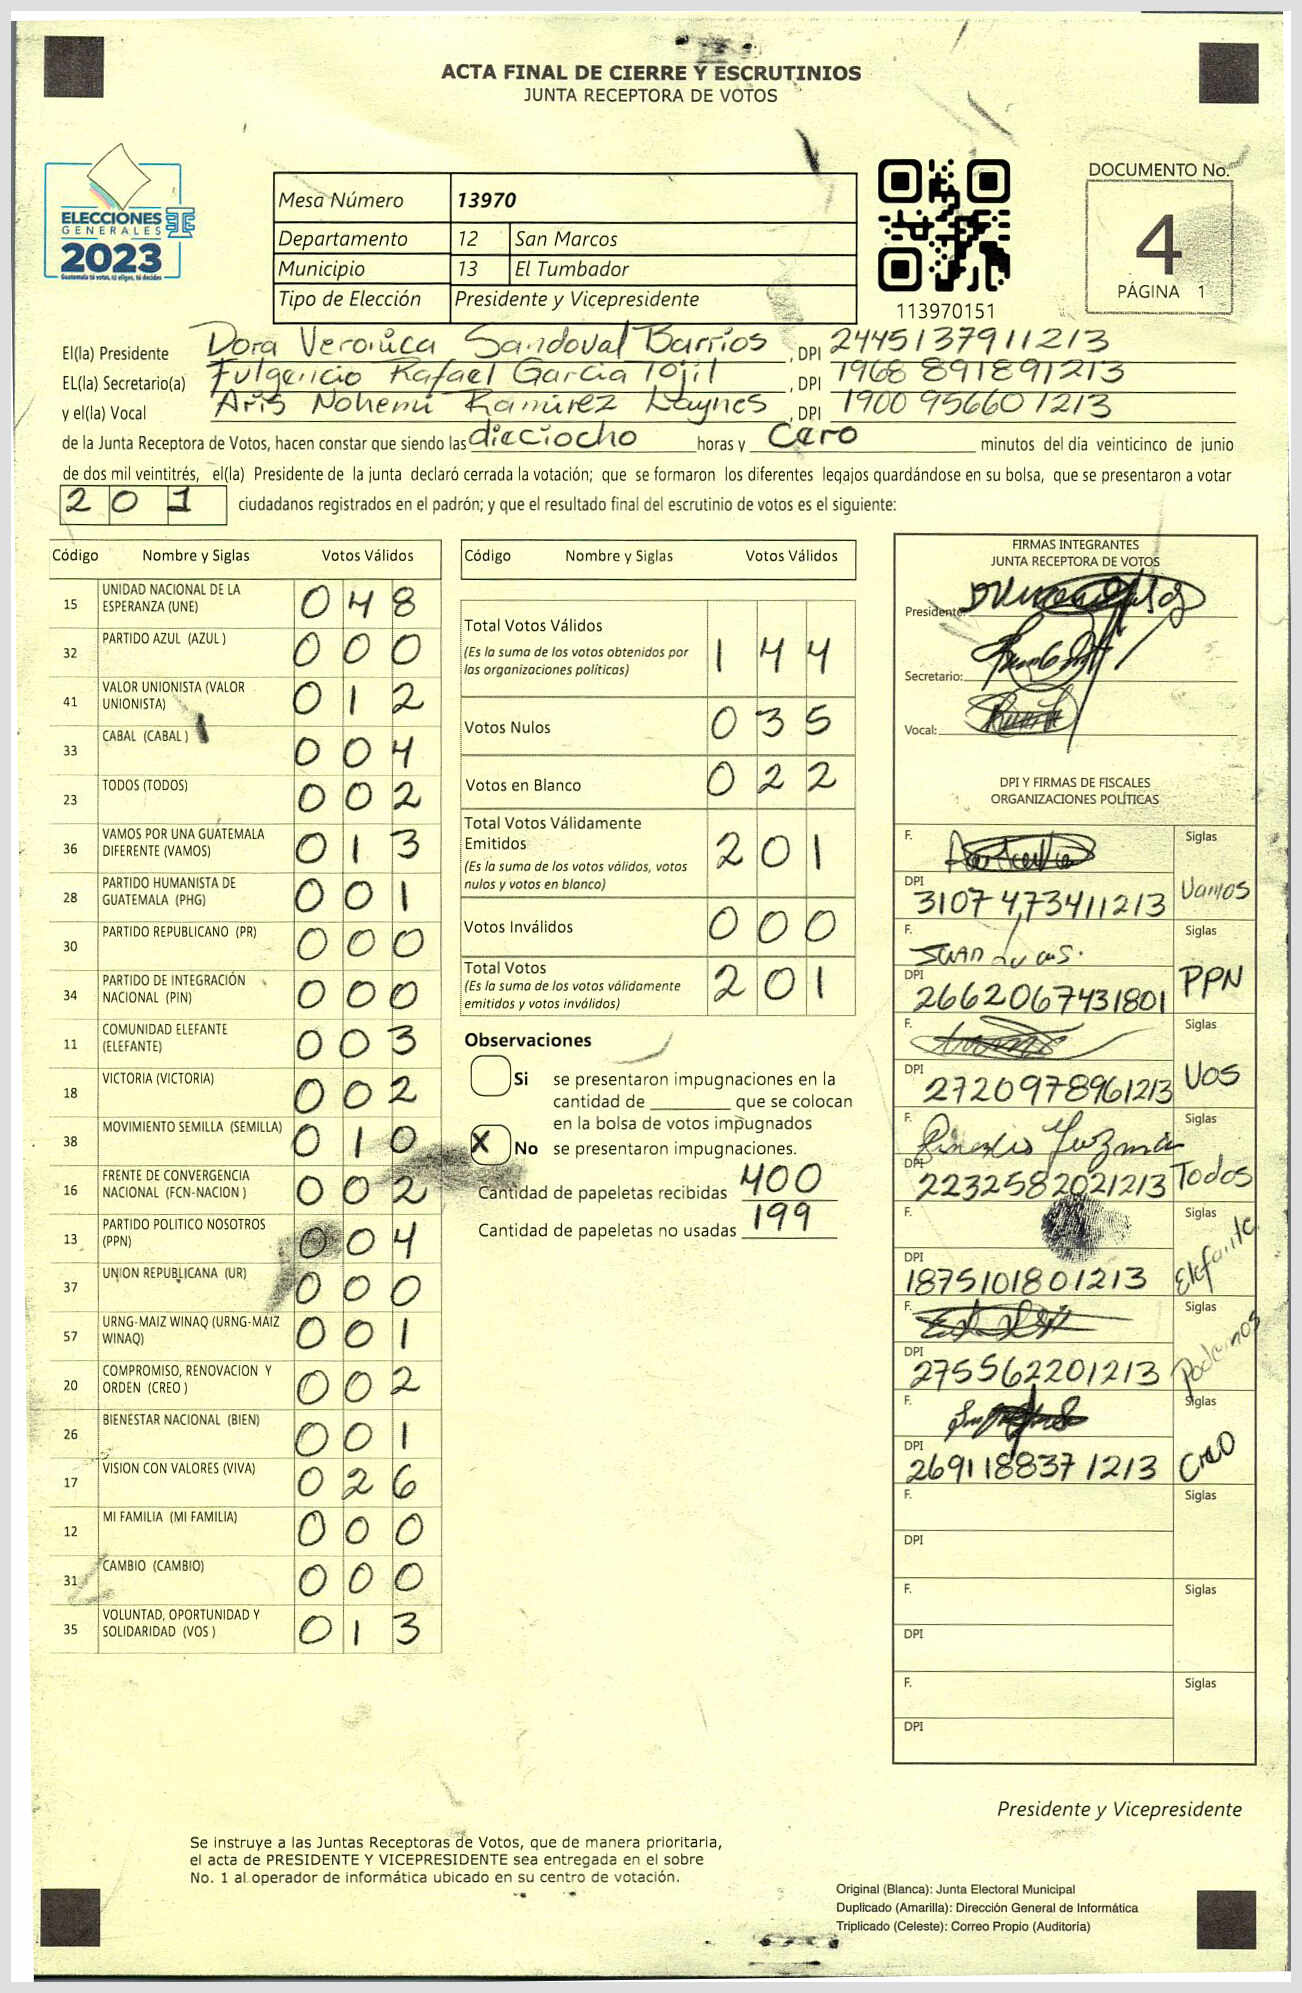 ACTA FINAL DE CIERRE Y ESCRUTINIOS
JUNTA RECEPTORA DE VOTOS
ELECCIONES
GENERALES
2023
Guatemala tú votas, tú eliges, tú decides
Mesa Número 13970
Departamento 12 San Marcos
Municipio 13 El Tumbador
Tipo de Elección Presidente y Vicepresidente
113970151
DOCUMENTO No.
4
PÁGINA 1
El(la) Presidente Dora Veronica Sandoval Barrios, DPI 2445137911213
EL(la) Secretario(a) Fulgencio Rafael Garcia Tojil, DPI 1968 891891213
y el(la) Vocal Aris Nohemi Ramirez Laynes, DPI 1900 956601213
de la Junta Receptora de Votos, hacen constar que siendo las dieciocho horas y Cero minutos del día veinticinco de junio
de dos mil veintitrés, el(la) Presidente de la junta declaró cerrada la votación; que se formaron los diferentes legajos guardándose en su bolsa, que se presentaron a votar
201 ciudadanos registrados en el padrón; y que el resultado final del escrutinio de votos es el siguiente:
Código Nombre y Siglas Votos Válidos
15 UNIDAD NACIONAL DE LA ESPERANZA (UNE) 048
32 PARTIDO AZUL (AZUL ) 000
41 VALOR UNIONISTA (VALOR UNIONISTA) 012
33 CABAL (CABAL ) 004
23 TODOS (TODOS) 002
36 VAMOS POR UNA GUATEMALA DIFERENTE (VAMOS) 013
28 PARTIDO HUMANISTA DE GUATEMALA (PHG) 001
30 PARTIDO REPUBLICANO (PR) 000
34 PARTIDO DE INTEGRACIÓN NACIONAL (PIN) 000
11 COMUNIDAD ELEFANTE (ELEFANTE) 003
18 VICTORIA (VICTORIA) 002
38 MOVIMIENTO SEMILLA (SEMILLA) 010
16 FRENTE DE CONVERGENCIA NACIONAL (FCN-NACION ) 002
13 PARTIDO POLITICO NOSOTROS (PPN) 004
37 UNION REPUBLICANA (UR) 000
57 URNG-MAIZ WINAQ (URNG-MAIZ WINAQ) 001
20 COMPROMISO, RENOVACION Y ORDEN (CREO ) 002
26 BIENESTAR NACIONAL (BIEN) 001
17 VISION CON VALORES (VIVA) 026
12 MI FAMILIA (MI FAMILIA) 000
31 CAMBIO (CAMBIO) 000
35 VOLUNTAD, OPORTUNIDAD Y SOLIDARIDAD (VOS ) 013
Código Nombre y Siglas Votos Válidos
Total Votos Válidos 144
(Es la suma de los votos obtenidos por
las organizaciones políticas)
Votos Nulos 035
Votos en Blanco 022
Total Votos Válidamente
Emitidos 201
(Es la suma de los votos válidos, votos
nulos y votos en blanco)
Votos Inválidos 000
Total Votos 201
(Es la suma de los votos válidamente
emitidos y votos inválidos)
Observaciones
Si se presentaron impugnaciones en la
cantidad de ________ que se colocan
en la bolsa de votos impugnados
X No se presentaron impugnaciones.
Cantidad de papeletas recibidas 400
Cantidad de papeletas no usadas 199
FIRMAS INTEGRANTES
JUNTA RECEPTORA DE VOTOS
Presidente:
Secretario:
Vocal:
DPI Y FIRMAS DE FISCALES
ORGANIZACIONES POLÍTICAS
F. Siglas
DPI 3107 473411213 Vamos
F. Siglas
DPI 2662067431801 PPN
F. Siglas
DPI 2720978961213 VOS
F. Siglas
DPI 2232582021213 Todos
F. Siglas
DPI 1875101801213 Elefante
F. Siglas
DPI 275562201213 Podemos
F. Siglas
DPI 2691188371213 Creo
F. Siglas
DPI
F. Siglas
DPI
F. Siglas
DPI
Presidente y Vicepresidente
Se instruye a las Juntas Receptoras de Votos, que de manera prioritaria,
el acta de PRESIDENTE Y VICEPRESIDENTE sea entregada en el sobre
No. 1 al operador de informática ubicado en su centro de votación.
Original (Blanca): Junta Electoral Municipal
Duplicado (Amarilla): Dirección General de Informática
Triplicado (Celeste): Correo Propio (Auditoría)